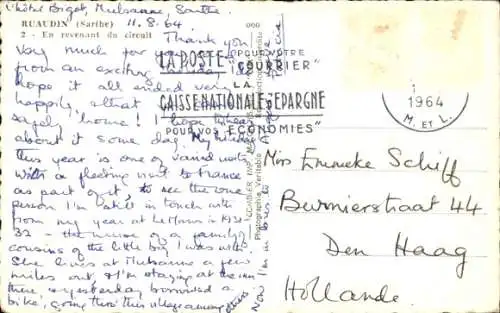 Hôtel Bigot, Mulsanne, Sarthe
RUAUDIN (Sarthe) 11.8.64
2 - En revenant du circuit
000
Thank you
very much for
from an exciting
hope it all ended very
happily, & that
safely home! I hope to hear
about it some day. My holiday
this year is one of varied
with a fleeting visit to France
as part of it, to see the one
person I'm still in touch with
from my year at Le Mans in 1931-
32 - the nurse of a family,
cousins of the little boy I was with.
She lives at Mulsanne a few
miles out, & I'm staying at the inn
there & yesterday borrowed a
bike, going thro' this village among others
Now I'm in
LA POSTE "POUR VOTRE
COURRIER"
LA
CAISSE NATIONALE D'EPARGNE
POUR VOS ECONOMIES"
1964
M. ET L.
COMBIER IMP.
Photographie Véritable
Miss Emmeke Schiff
Burnierstraat 44
Den Haag
Hollande.